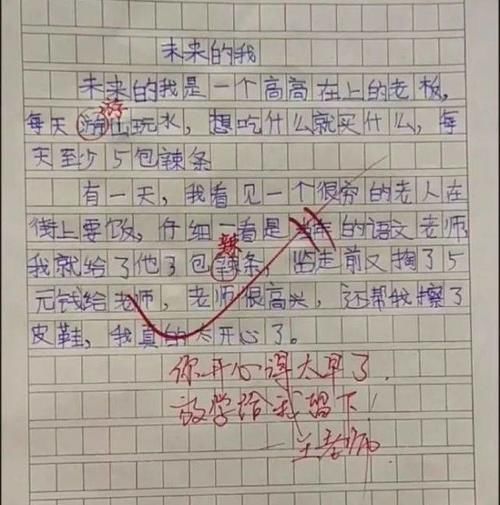 未来的我
未来的我是一个高高在上的老板,
每天游山玩水,想吃什么就买什么,每
天至少5包辣条
有一天,我看见一个很穷的老人在
街上要饭,仔细一看是当年的语文老师,
辣
我就给了他3包辣条,临走前又掏了5
元钱给老师,老师很高兴,还帮我擦了
皮鞋,我真的太开心了。
你开心得太早了,
放学给我留下!
王老师